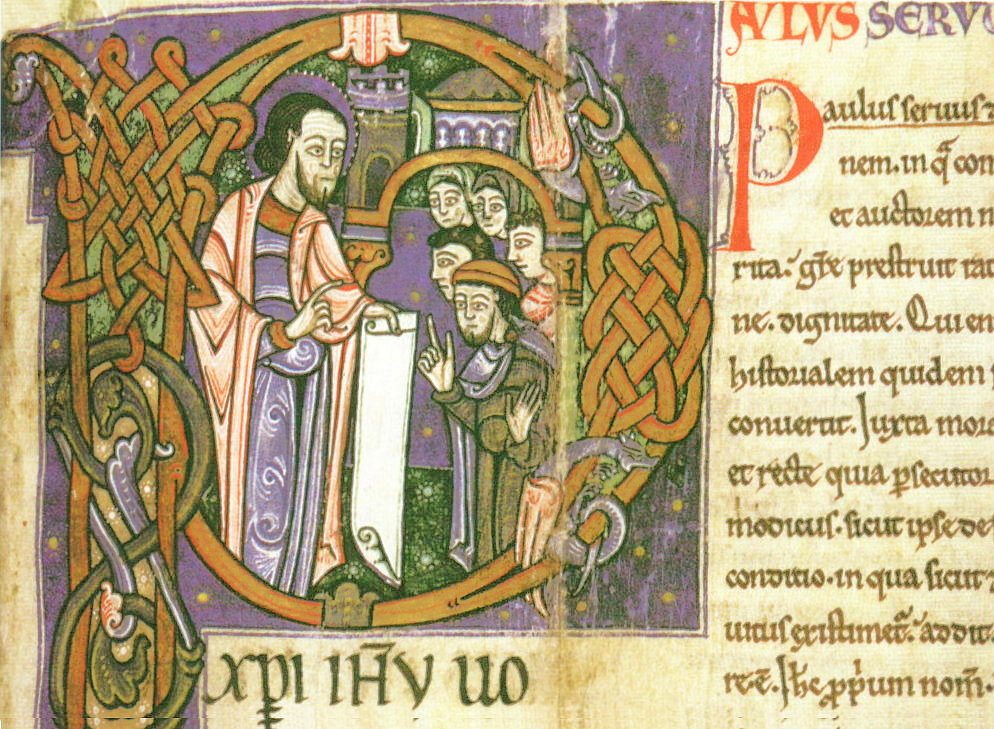 AULUS SERVU
Paulus seruus
nem. in q̄ con
et auctorem n
rita. gr̄e prestruit rat
ne. dignitate. Qui en
historialem quidem
conuertit. Juxta more
et recte quia ꝑsecutor
modicus. sicut ipse de
conditio. in qua sicut
uitus existimet̄. addit
re ē. Jh̄c pp̄ium nom̄.
P
xpi ihv uo